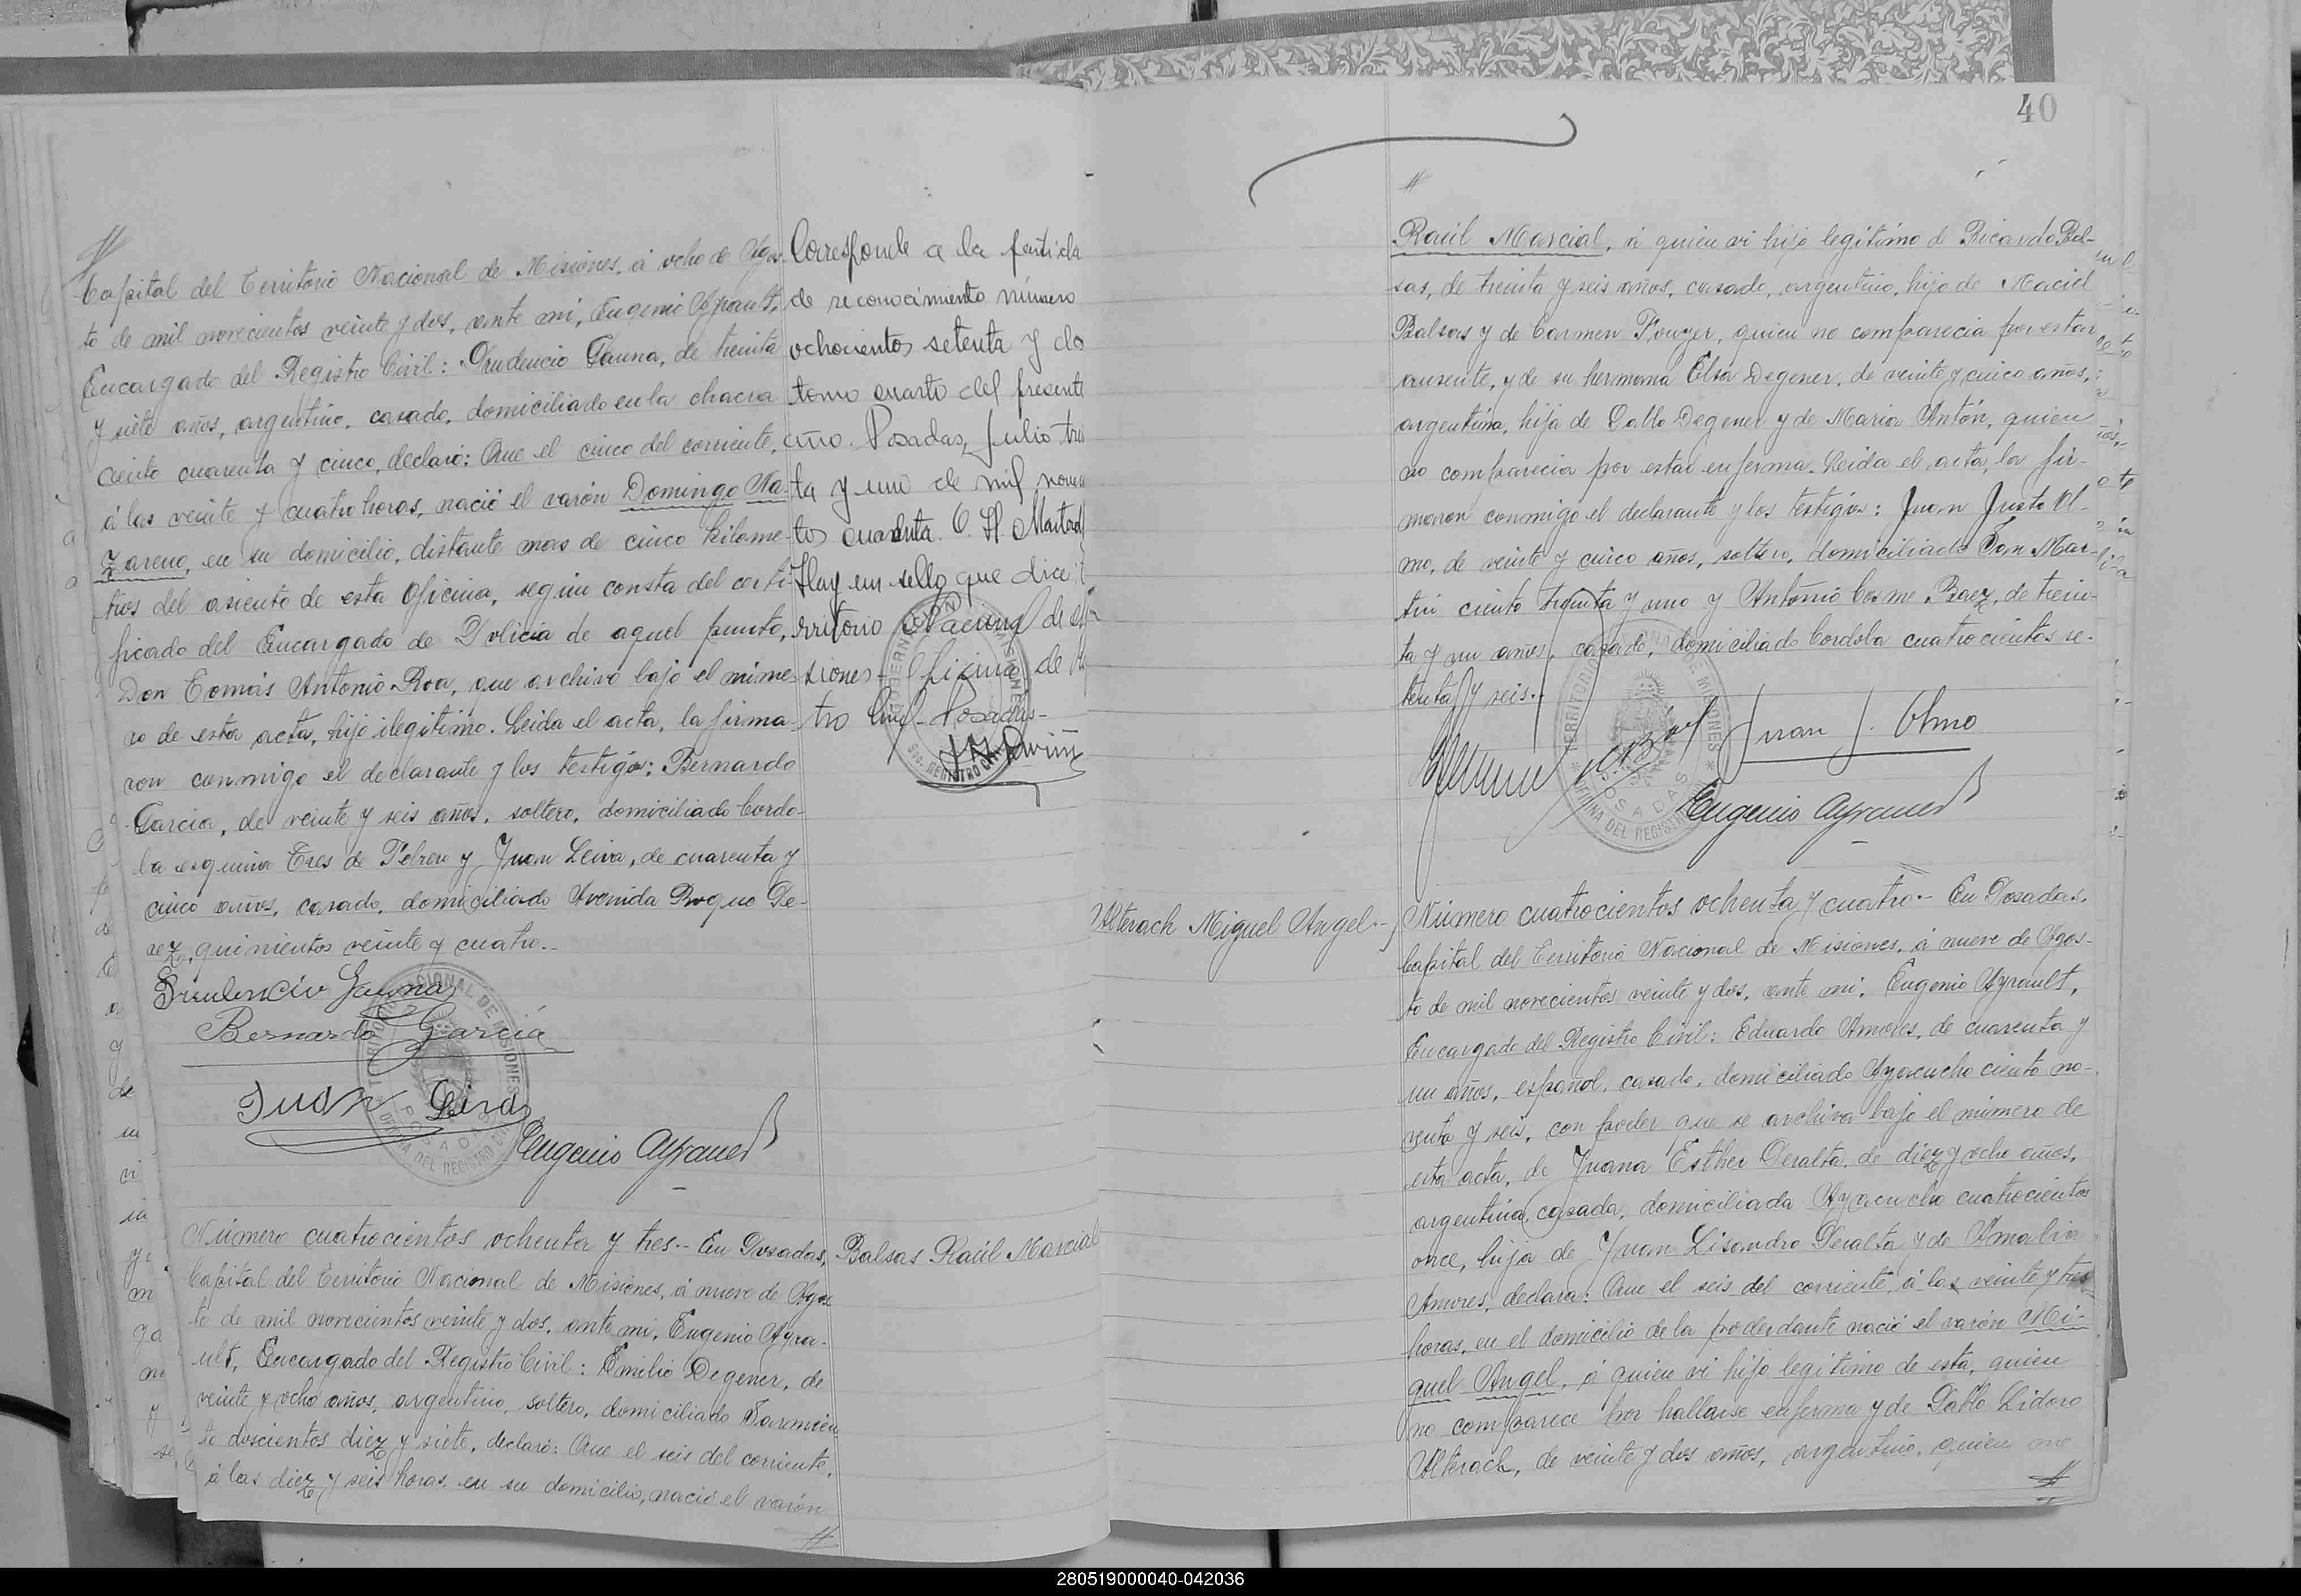 Capital del Territorio Nacional de Misiones, á ocho de Agos-
to de mil novecientos veinte y dos, ante mi, Eugenio Ayrault,
Encargado del Registro Civil: Prudencio Gauna, de treinta
y siete años, argentino, casado, domiciliado en la chacra
ciento cuarenta y cinco, declaró: Que el cinco del corriente,
á las veinte y cuatro horas, nació el varón Domingo Na-
zareno, en su domicilio, distante mas de cinco kilome-
tros del asiento de esta Oficina, según consta del certi-
ficado del Encargado de Policia de aquel punto,
Don Tomás Antonio Roa, que archivo bajo el núme-
ro de esta acta, hijo ilegitimo. Leida el acta, la firma-
ron conmigo el declarante y los testigos: Bernardo
Garcia, de veinte y seis años, soltero, domiciliado Cordo-
ba esquina Tres de Febrero y Juan Leiva, de cuarenta y
cinco años, casado, domiciliado Avenida Roque Pe-
rez, quinientos veinte y cuatro.-
Prudencio Gauna
Bernardo García
Juan Leiva
Eugenio Ayrault
Corresponde a la partida
de reconocimiento número
ochocientos setenta y do
tomo cuarto del presente
año. Posadas, Julio trei
ta y uno de mil novecie
tos cuarenta.
Hay un sello que dice: T
rritorio Nacional de Mi
siones - Oficina de Re
tro Civil - Posadas-
Número cuatrocientos ochenta y tres.- En Posadas,
Capital del Territorio Nacional de Misiones, á nueve de Agos
to de mil novecientos veinte y dos, ante mi, Eugenio Ayra-
ult, Encargado del Registro Civil: Emilio Degener, de
veinte y ocho años, argentino, soltero, domiciliado Sarmien
to doscientos diez y siete, declaró: Que el seis del corriente,
á las diez y seis horas, en su domicilio, nació el varón
Balsas Raúl Marcial
40
Raúl Marcial, á quien vi hijo legitimo de Ricardo Bal-
sas, de treinta y seis años, casado, argentino, hijo de Maciel
Balsas y de Carmen Fouyer, quien no comparecia por estar
ausente, y de su hermana Elsa Degener, de veinte y cinco años,
argentina, hija de Pablo Degener y de Maria Antón, quien
no comparecia por estar enferma. Leida el acta, la fir-
maron conmigo el declarante y los testigos: Juan Justo Ol-
mo, de veinte y cinco años, soltero, domiciliado San Mar-
tin ciento treinta y uno y Antonio Cosme Baez, de trein-
ta y un años, casado, domiciliado Cordoba cuatrocientos se-
tenta y seis.-
Juan J. Olmo
Eugenio Ayrault
Alterach Miguel Angel.-
Número cuatrocientos ochenta y cuatro.- En Posadas,
Capital del Territorio Nacional de Misiones, á nueve de Agos-
to de mil novecientos veinte y dos, ante mi, Eugenio Ayrault,
Encargado del Registro Civil: Eduardo Amores, de cuarenta y
un años, español, casado, domiciliado Ayacucho ciento no-
venta y seis, con poder que se archiva bajo el número de
esta acta, de Juana Esther Peralta, de diez y ocho años,
argentina, casada, domiciliada Ayacucho cuatrocientos
once, hija de Juan Lisandro Peralta y de Amalia
Amores, declara: Que el seis del corriente, á las veinte y tres
horas, en el domicilio de la poderdante nació el varón Mi-
guel Angel, á quien vi hijo legitimo de esta, quien
no comparece por hallarse enferma y de Pablo Lidoro
Alterach, de veinte y dos años, argentino, quien no
280519000040-042036